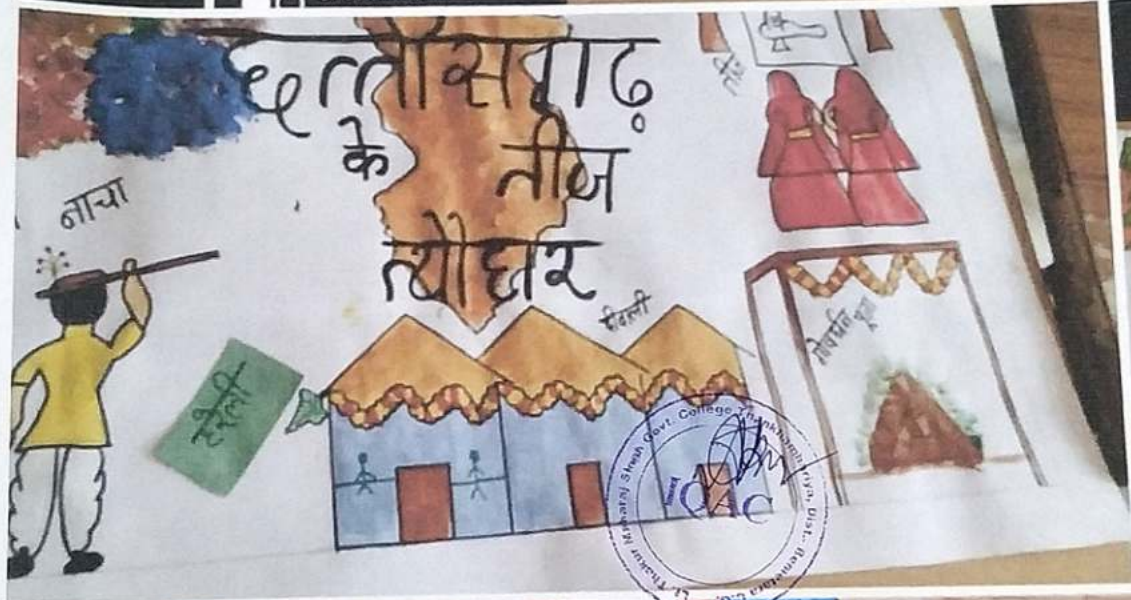 छत्तीसगढ़
के तीज
त्यौहार
नाचा
हरेली
दीवाली
गोवर्धन पूजा
Lt. Thakur Maharaj Singh Govt. College Thankhamhariya, Dist. Bemetara C.G.
IQAC